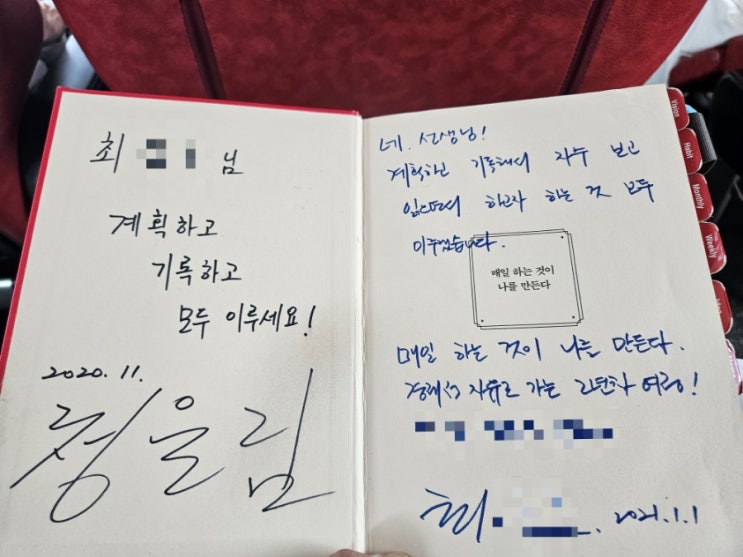 최 님
계획하고
기록하고
모두 이루세요!
2020. 11.
청울림
네. 선생님!
계획하고 기록해서 자주 보고
읽으면서 하고자 하는 것 모두
이루겠습니다.
매일 하는 것이
나를 만든다
매일 하는 것이 나를 만든다.
경제적 자유로 가는 2년차 여정!
최. 2021.1.1
Vision
Habit
Monthly
Weekly